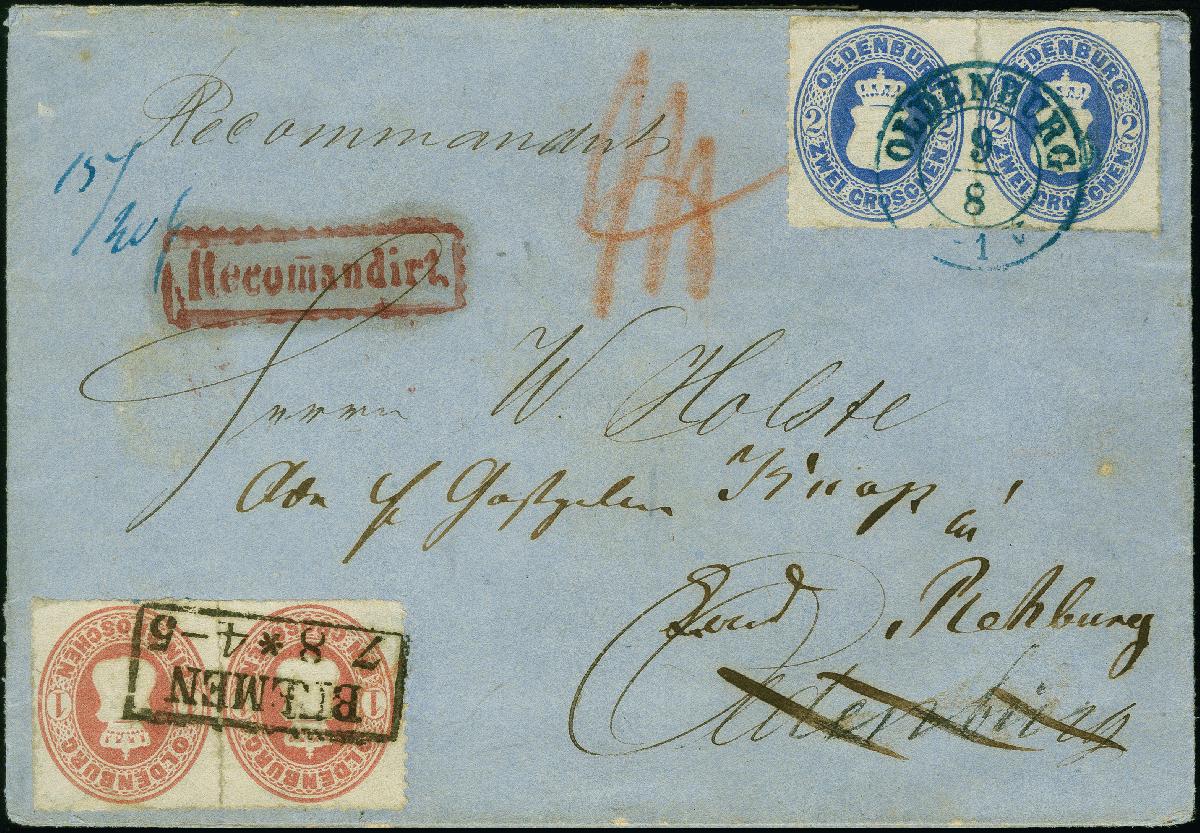 Recommandirt
OLDENBURG OLDENBURG
2 2 2 2
ZWEI GROSCHEN ZWEI GROSCHEN
OLDENBURG
9
8
1
15/
Recom̄andirt.
Herrn W. Holste
Knoop
in
Bad Rehburg
Oldenburg
BREMEN
7 8 * 4-5
1 GROSCHEN 1 GROSCHEN
OLDENBURG OLDENBURG